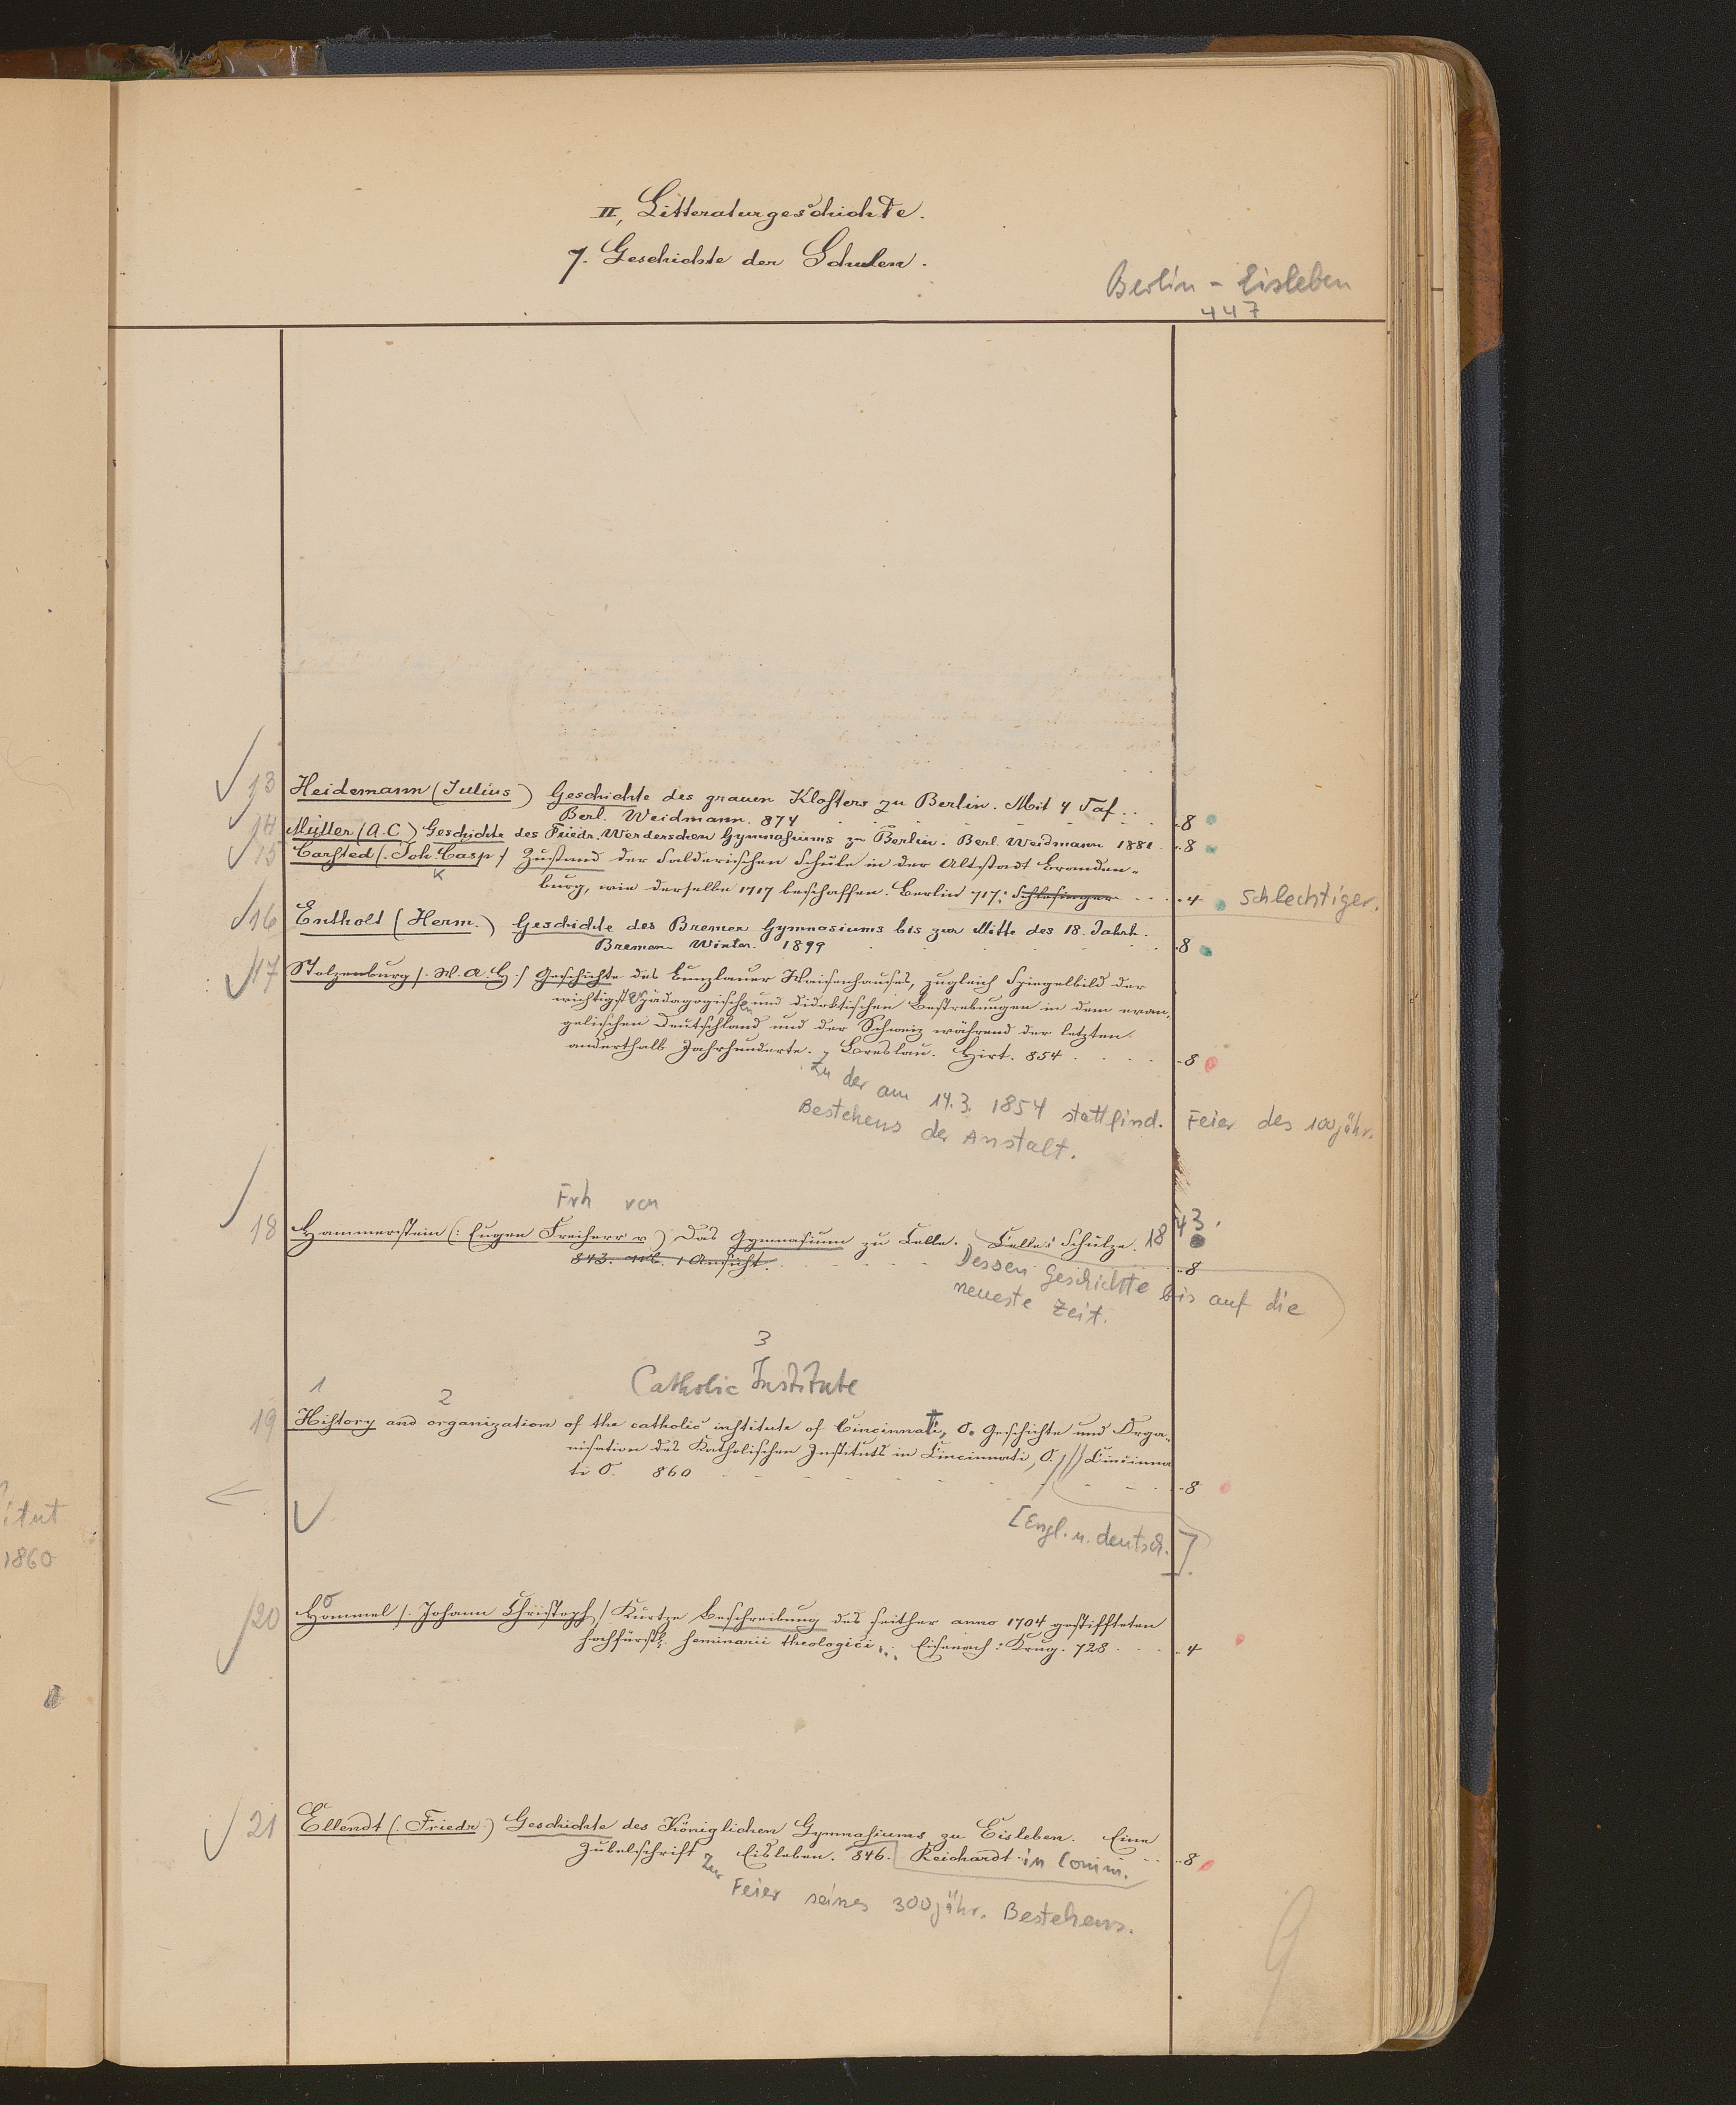 II, Litteraturgeschichte.
7. Geschichte der Schulen.
Berlin - Eisleben
447
13 Heidemann (Julius) Geschichte des grauen Klosters zu Berlin. Mit 4 Taf..
Berl. Weidmann. 874 8
14 Müller (A. C.) Geschichte des Friedr. Werderschen Gymnasiums zu Berlin. Berl. Weidmann 1881. 8
15 Carsted (. Joh. Casp / Zustand der Salderischen Schule in der Altstadt Branden-
K
burg, wie derselbe 1717 beschaffen. Berlin 717: Schlesinger 4 Schlechtiger.
16 Entholt (Herm.) Geschichte des Bremer Gymnasiums bis zur Mitte des 18. Jahrh.
Bremen Winter. 1899 8
17 Stolzenburg /. W. A. H./ Geschichte des Bunzlauer Waisenhauses, zugleich Spiegelbild der
wichtigsten pädagogischen und didaktischen Bestrebungen in dem evan-
gelischen Deutschland und der Schweiz während der letzten
anderthalb Jahrhunderte. Breslau. Hirt. 854 8
Zu der am 14.3. 1854 stattfind. Feier des 100jähr.
Bestehens der Anstalt.
Frh von
18 Hammerstein (: Eugen Freiherr v) Das Gymnasium zu Celle. Celle: Schulze. 1843.
843. 1 Ansicht. 8
Dessen Geschichte bis auf die
neueste Zeit.
3
Catholic Institute
1 2
19 History and organization of the catholic institute of Cincinnati, O. Geschichte und Orga-
nisation des Katholischen Instituts in Cincinnati, O. // Cincinna
ti O. 860 8
[Engl. u. deutsch.]
itut
1860
20 Hommel /. Johann Christoph / Kurtze Beschreibung des seither anno 1704 gestiffteten
hochfürstl. seminarii theologici... Eisenach: Krug. 728 4
21 Ellendt (. Friedr.) Geschichte des Königlichen Gymnasiums zu Eisleben. Eine
Jubelschrift Eisleben. 846. Reichardt in Comm. 8
Zur
Feier seines 300jähr. Bestehens.
9